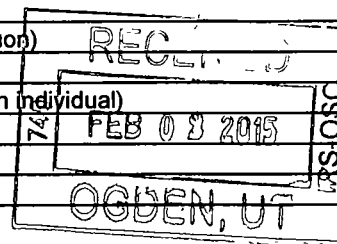 on)
RECEIVED
n individual)
FEB 0 9 2015
IRS-OSC
OGDEN, UT